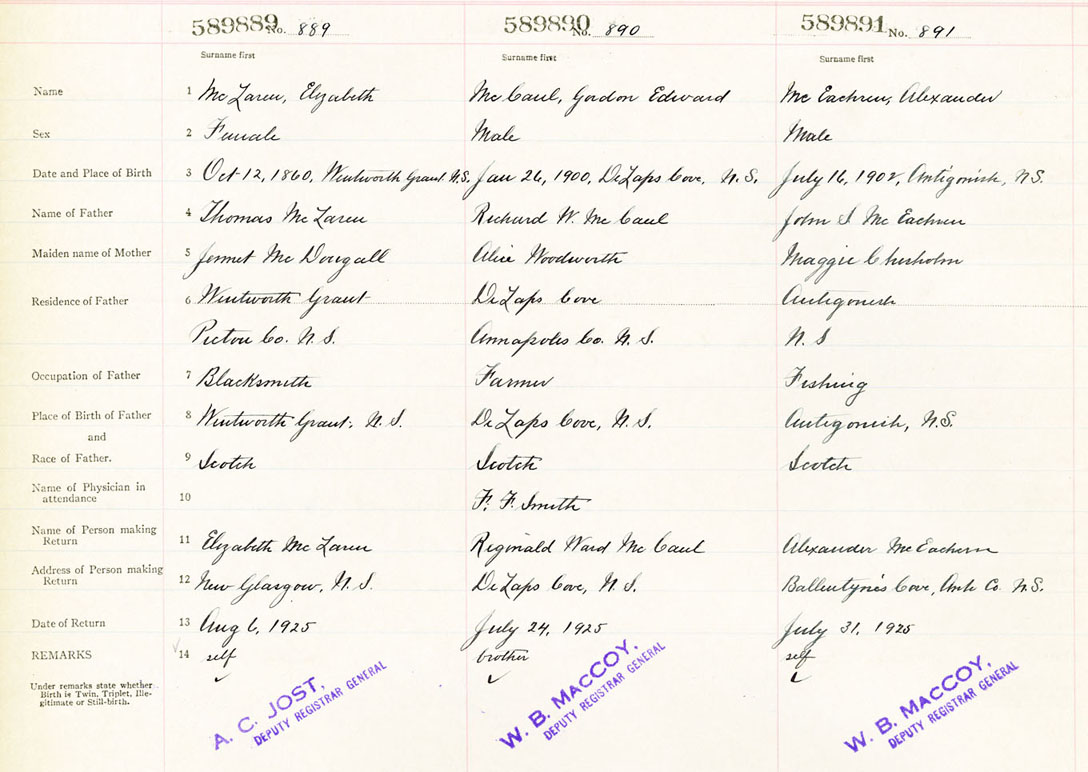 589889 No. 889 589890 No. 890 589891 No. 891
Surname first Surname first Surname first
Name 1 McLaren, Elizabeth McCaul, Gordon Edward McEachren, Alexander
Sex 2 Female Male Male
Date and Place of Birth 3 Oct 12, 1860, Wentworth Grant N.S. Jan 26, 1900, DeLaps Cove, N.S. July 16, 1902, Antigonish, N.S.
Name of Father 4 Thomas McLaren Richard W. McCaul John S McEachren
Maiden name of Mother 5 Jennet McDougall Alice Woodworth Maggie Chisholm
Residence of Father 6 Wentworth Grant DeLaps Cove Antigonish
Pictou Co. N.S. Annapolis Co. N.S. N.S
Occupation of Father 7 Blacksmith Farmer Fishing
Place of Birth of Father 8 Wentworth Grant, N.S. DeLaps Cove, N.S. Antigonish, N.S.
and
Race of Father. 9 Scotch Scotch Scotch
Name of Physician in
attendance 10 F. F. Smith
Name of Person making
Return 11 Elizabeth McLaren Reginald Ward McCaul Alexander McEachern
Address of Person making
Return 12 New Glasgow, N.S. DeLaps Cove, N.S. Ballentyne's Cove, Ant. Co. N.S.
Date of Return 13 Aug 6, 1925 July 24, 1925 July 31, 1925
REMARKS 14 self brother self
Under remarks state whether
Birth is Twin, Triplet, Ille-
gitimate or Still-birth.
A. C. JOST, W. B. MACCOY, W. B. MACCOY,
DEPUTY REGISTRAR GENERAL DEPUTY REGISTRAR GENERAL DEPUTY REGISTRAR GENERAL